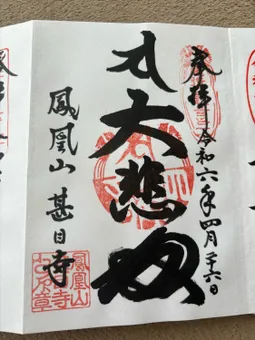 奉拝 令和六年四月二十六日
大悲殿
鳳凰山 甚目寺
鳳凰山
甚目寺